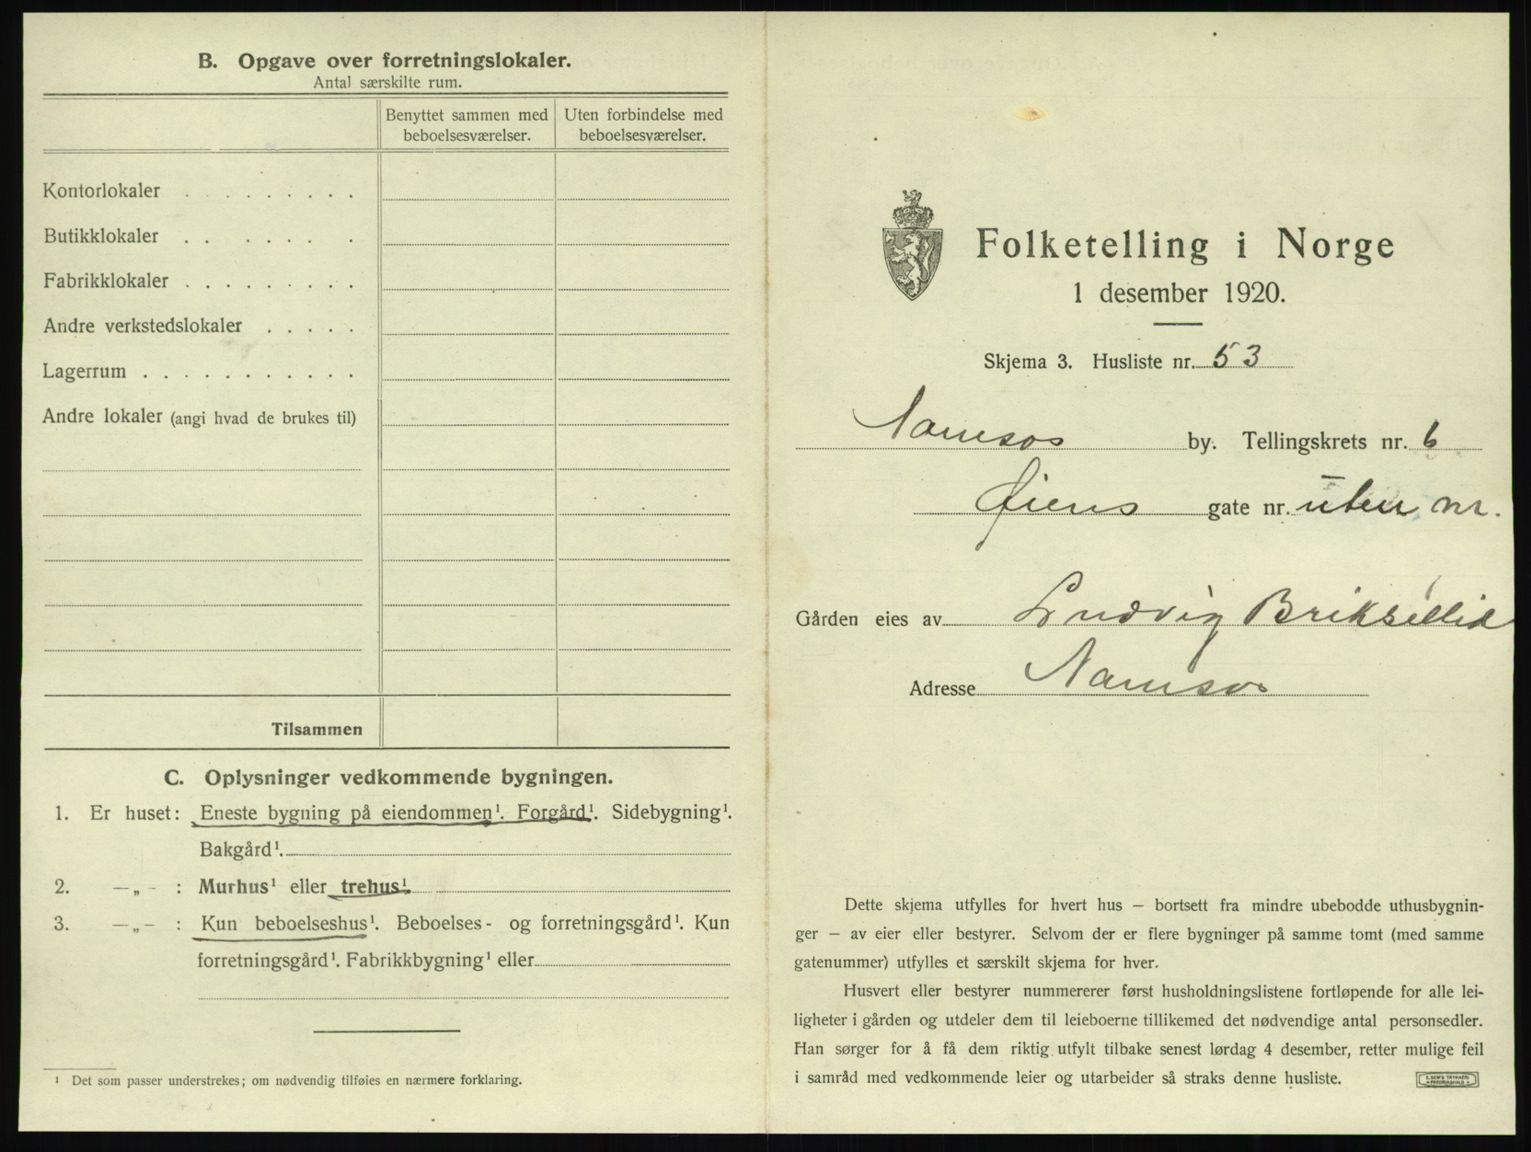 B. Opgave over forretningslokaler.
Antal særskilte rum.
Benyttet sammen med beboelsesværelser.
Uten forbindelse med beboelsesværelser.
Kontorlokaler
Butikklokaler
Fabrikklokaler
Andre verkstedslokaler
Lagerrum
Andre lokaler (angi hvad de brukes til)
Tilsammen
C. Oplysninger vedkommende bygningen.
1. Er huset: Eneste bygning på eiendommen¹. Forgård¹. Sidebygning¹.
Bakgård¹.
2. —„- : Murhus¹ eller trehus¹.
3. —„- : Kun beboelseshus¹. Beboelses- og forretningsgård¹. Kun
forretningsgård¹. Fabrikkbygning¹ eller
¹ Det som passer understrekes; om nødvendig tilføies en nærmere forklaring.
Folketelling i Norge
1 desember 1920.
Skjema 3. Husliste nr. 53
Namsos by. Tellingskrets nr. 6
Øiens gate nr. uten nr.
Gården eies av Ludvig
Adresse Namsos
Dette skjema utfylles for hvert hus — bortsett fra mindre ubebodde uthusbygnin-
ger — av eier eller bestyrer. Selvom der er flere bygninger på samme tomt (med samme
gatenummer) utfylles et særskilt skjema for hver.
Husvert eller bestyrer nummererer først husholdningslistene fortløpende for alle lei-
ligheter i gården og utdeler dem til leieboerne tillikemed det nødvendige antal personsedler.
Han sørger for å få dem riktig utfylt tilbake senest lørdag 4 desember, retter mulige feil
i samråd med vedkommende leier og utarbeider så straks denne husliste.